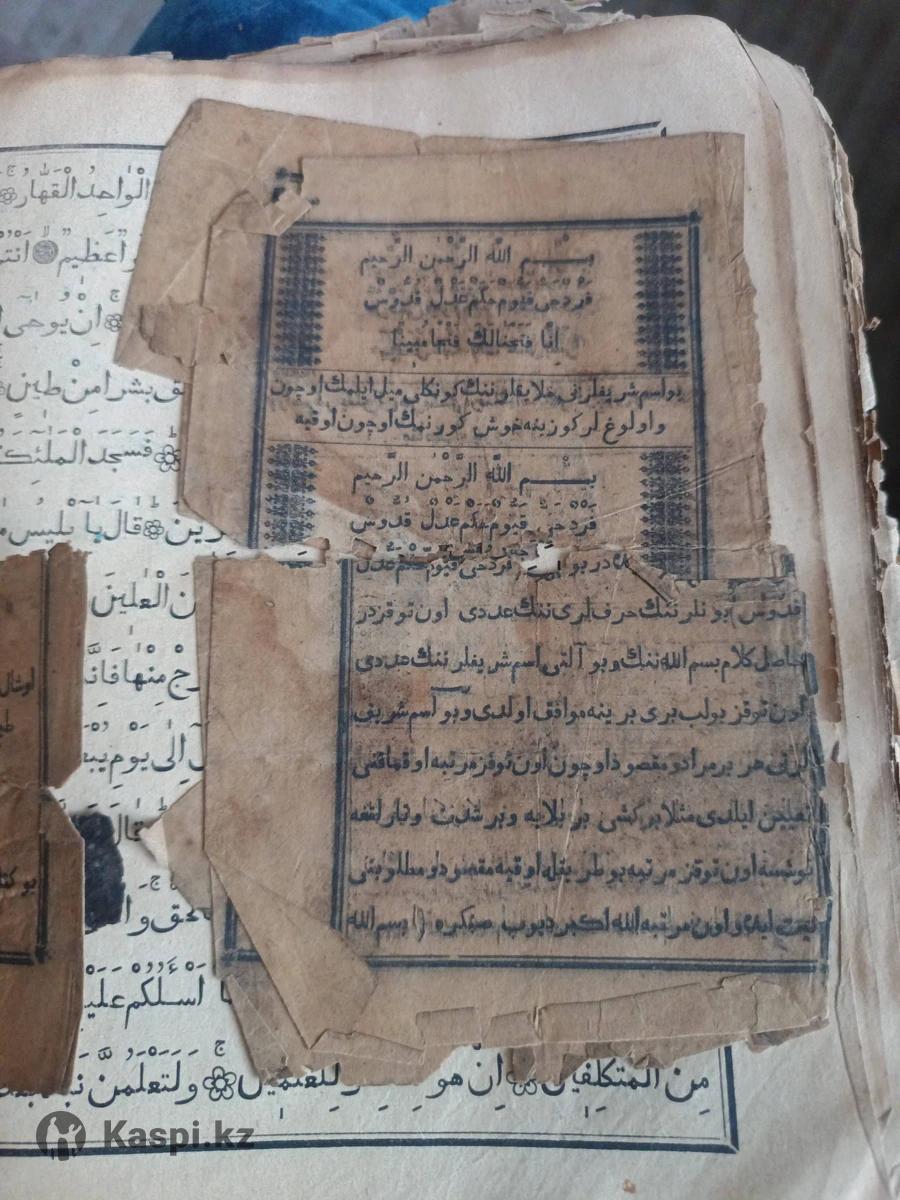 الْوَاحِدُ الْقَهَّارُ
عَظِيمٌ
اِنْ يُوحٰى
بَشَرًا مِنْ طِينٍ
فَسَجَدَ الْمَلٰٓئِكَ
قَالَ يَٓا اِبْلِيسُ
الْعٰلَمِينَ
مِنْهَا فَاِنَّ
اِلٰى يَوْمِ
قَالَ
اَسْـَٔلُكُمْ عَلَيْ
مِنَ الْمُتَكَلِّفِينَ اِنْ هُوَ لِلْعٰلَمِينَ وَلَتَعْلَمُنَّ
بسم الله الرَّحْمٰن الرَّحيم
فَرْد حَىّ قَيُّوم حَكَم عَدْل قُدُّوسٌ
اِنَّا فَتَحْنَالَكَ فَتْحًا مُبِينًا
بو اسم شريفلرنى خلايقلرننك كونكلى ميل ايلمك اوچون
و اولوغ لر كوزينه خوش كورنمك اوچون اوقيه
بسم الله الرَّحْمٰن الرَّحيم
فَرْد حَىّ قَيُّوم حَكَم عَدْل قُدُّوسٌ
در بو فرد حى قيوم حكم عدل
قدوس بونلرننك حرفلرى ننك عددى اون توقزدر
حاصل كلام بسم الله ننك و بو آلتى اسم شريفلرننك عددى
اون توقز بولب برى برينه موافق اولدى و بو اسم شريف
لرنى هر بر مراد و مقصود اوچون اون توقز مرتبه اوقماقنى
تعيين ايلدى مثلا بر كشى بر بلايه و بر شدت
توشسه اون توقز مرتبه بو طريقله اوقيه مقصود و مطلوبنى
نيت ايدب اون مرتبه الله اكبر ديوب صنكره بسم الله